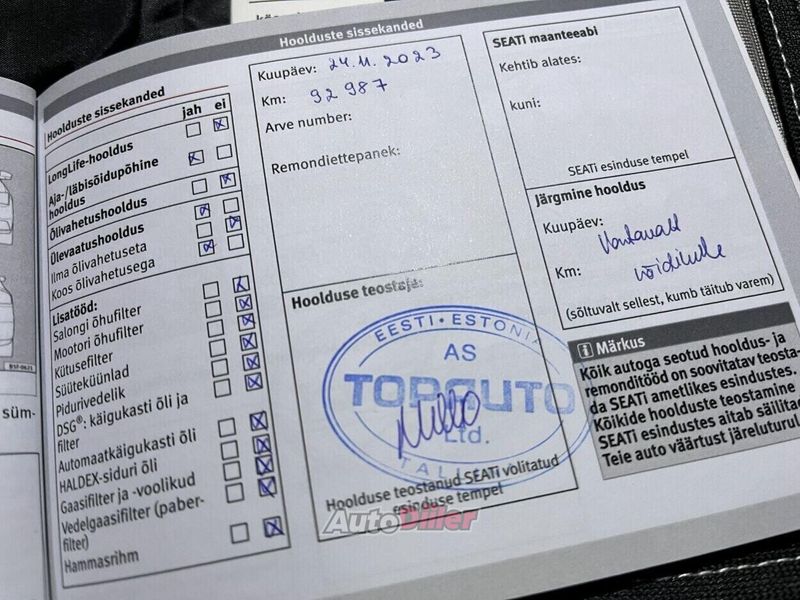 Hoolduste sissekanded
Hoolduste sissekanded
jah ei
LongLife-hooldus
Aja-/läbisõidupõhine
hooldus
Õlivahetushooldus
Ülevaatushooldus
Ilma õlivahetuseta
Koos õlivahetusega
Lisatööd:
Salongi õhufilter
Mootori õhufilter
Kütusefilter
Süüteküünlad
Pidurivedelik
DSG®: käigukasti õli ja
filter
Automaatkäigukasti õli
HALDEX-siduri õli
Gaasifilter ja -voolikud
Vedelgaasifilter (paber-
filter)
Hammasrihm
Kuupäev: 24.11.2023
Km: 92 987
Arve number:
Remondiettepanek:
Hoolduse teostaja:
EESTI · ESTONIA
AS
TOPAUTO
Ltd.
Hoolduse teostanud SEATi volitatud
esinduse tempel
SEATi maanteeabi
Kehtib alates:
kuni:
SEATi esinduse tempel
Järgmine hooldus
Kuupäev: Vastavalt
Km: näidikule
(sõltuvalt sellest, kumb täitub varem)
i Märkus
Kõik autoga seotud hooldus- ja
remonditööd on soovitatav teosta-
da SEATi ametlikes esindustes.
Kõikide hoolduste teostamine
SEATi esindustes aitab säilitada
Teie auto väärtust järelturul.
süm-
AutoDiiler